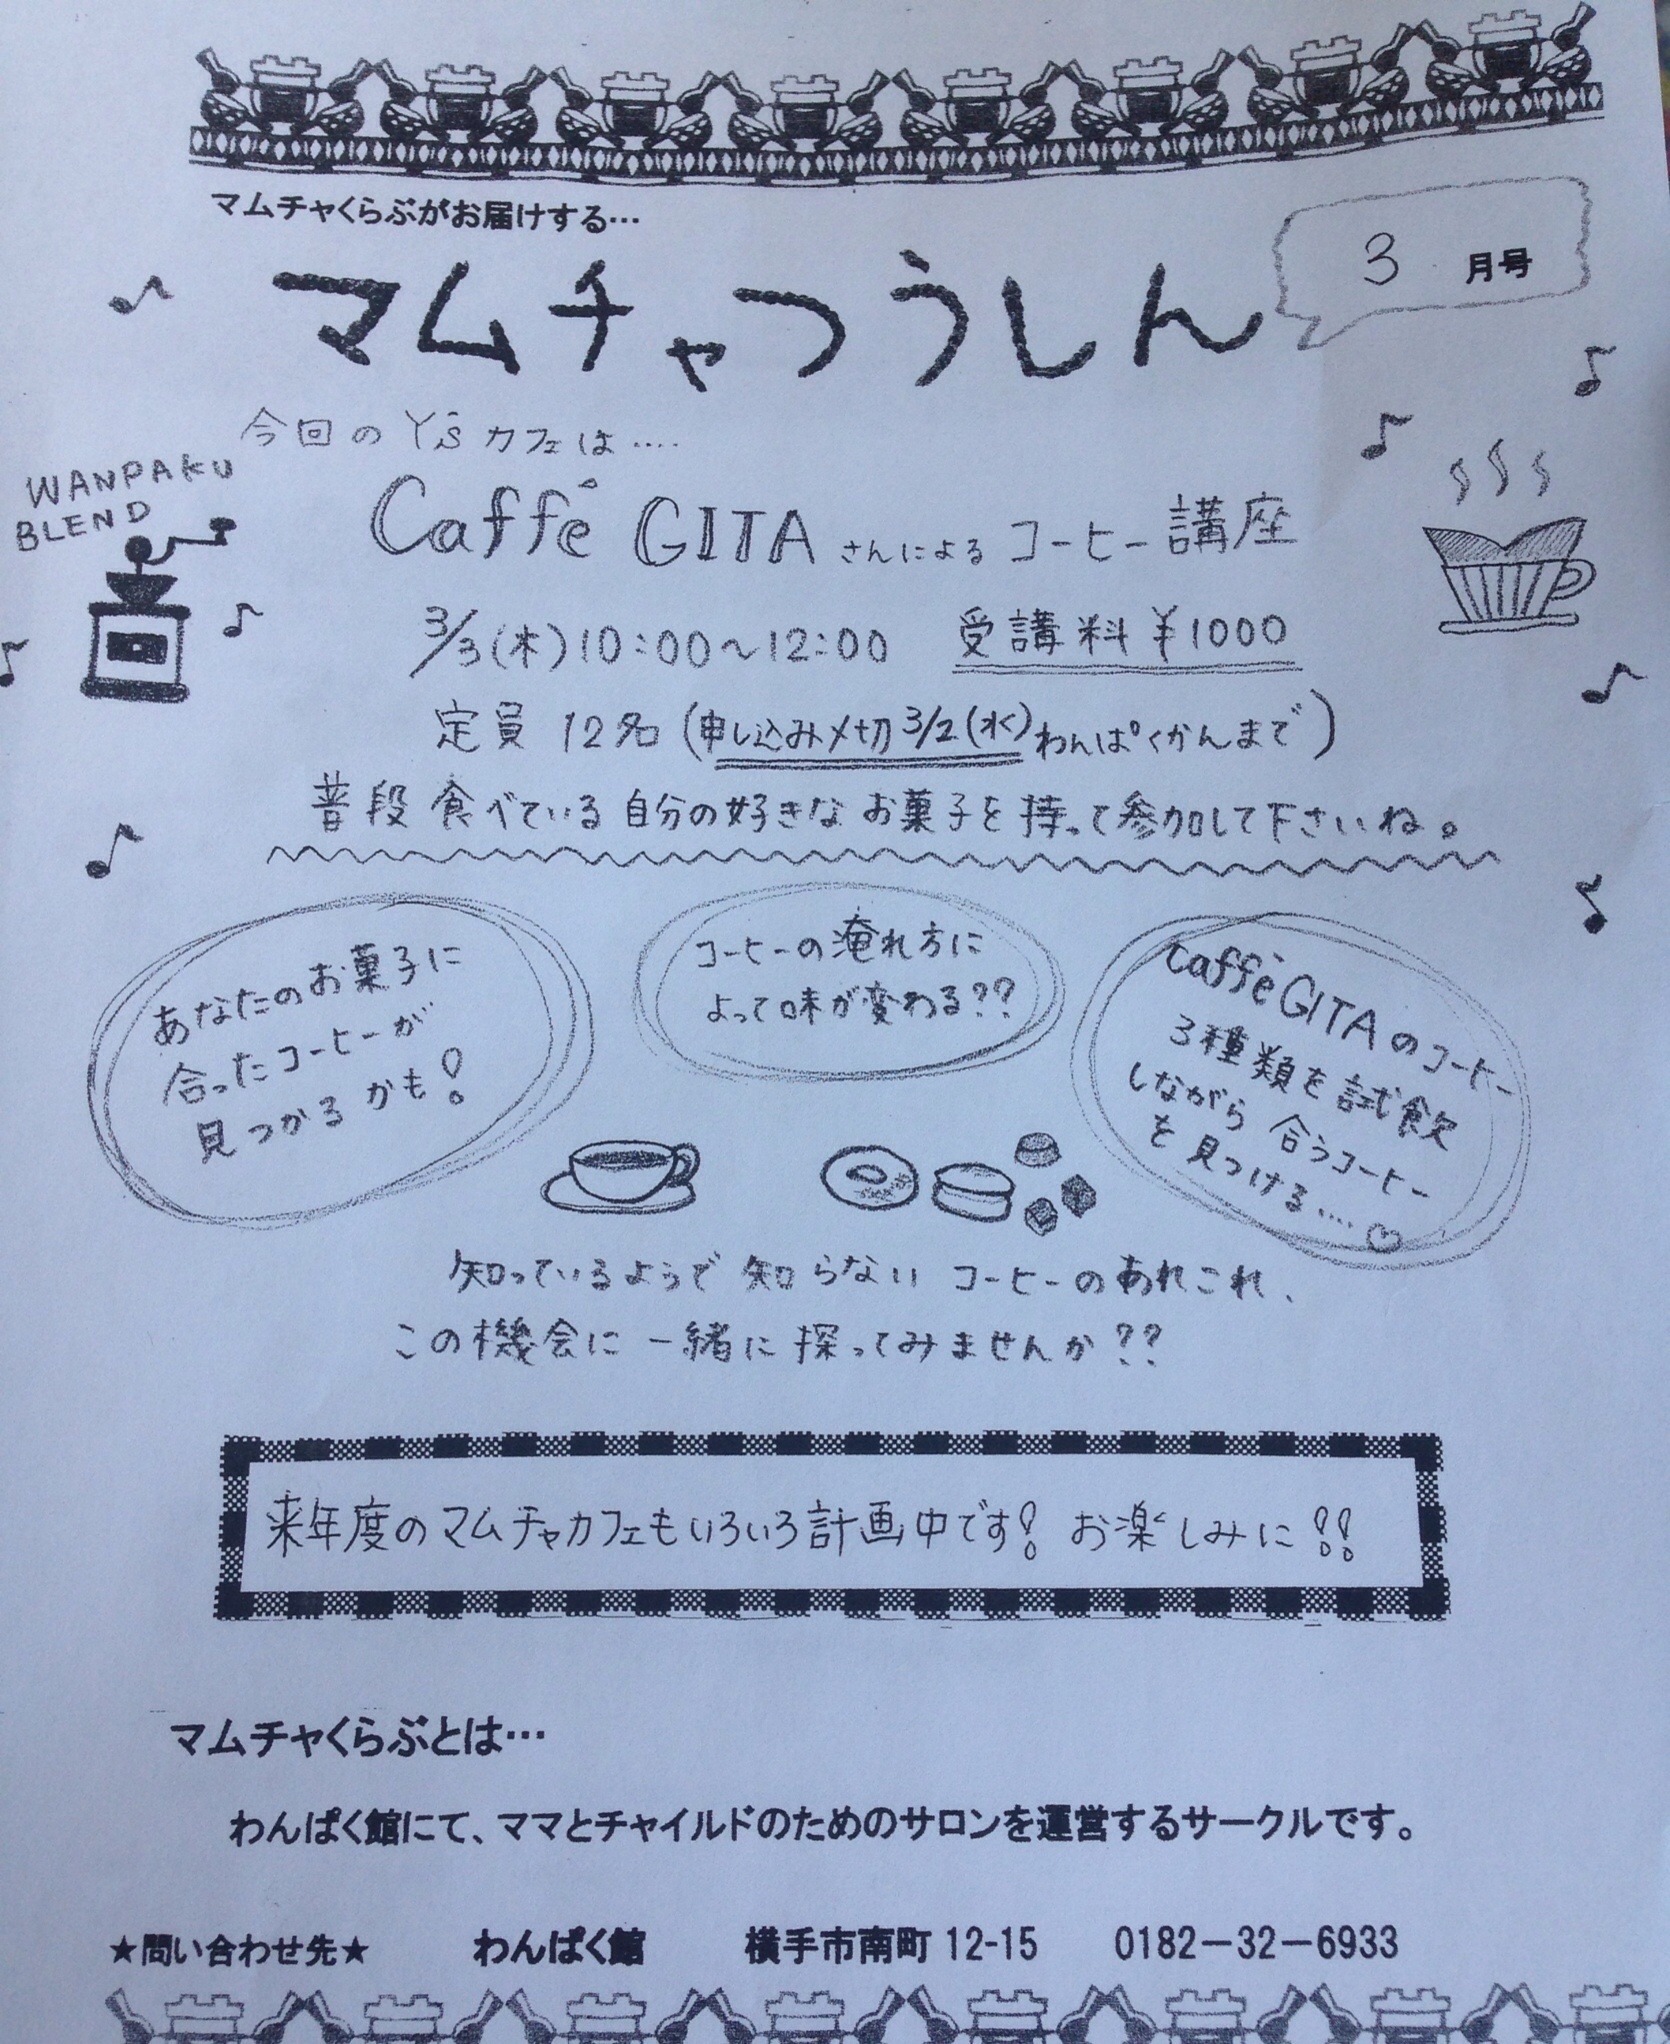 マムチャくらぶがお届けする…
マムチャつうしん
3 月号
今回の Y'sカフェは‥‥
WANPAKU
BLEND
Caffè GITA さんによる コーヒー講座
3/3(木)10:00～12:00 受講料¥1000
定員 12名(申し込み〆切3/2(水)わんぱくかんまで)
普段食べている自分の好きなお菓子を持って参加して下さいね。
あなたのお菓子に
合ったコーヒーが
見つかるかも!
コーヒーの淹れ方に
よって味が変わる??
Caffè GITAのコーヒー
3種類を試飲
しながら 合うコーヒー
を見つける‥‥♡
知っているようで知らない コーヒーのあれこれ、
この機会に一緒に探ってみませんか??
来年度のマムチャカフェもいろいろ計画中です! お楽しみに!!
マムチャくらぶとは…
わんぱく館にて、ママとチャイルドのためのサロンを運営するサークルです。
★問い合わせ先★ わんぱく館 横手市南町 12-15 0182－32－6933